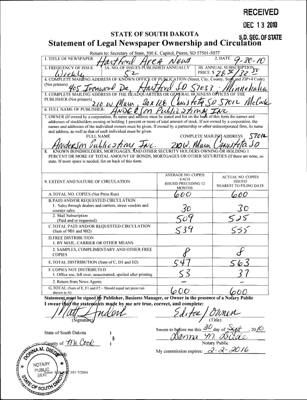 RECEIVED
DEC 13 2010
S.D. SEC. OF STATE
STATE OF SOUTH DAKOTA
Statement of Legal Newspaper Ownership and Circulation
Return to: Secretary of State, 500 E. Capitol, Pierre, SD 57501-5077
1. TITLE OF NEWSPAPER Hartford Area News
2. DATE 9-30-10
3. FREQUENCY OF ISSUE Weekly
3A. NO. OF ISSUES PUBLISHED ANNUALLY 52
3B. ANNUAL SUBSCRIPTION PRICE $
4. COMPLETE MAILING ADDRESS OF KNOWN OFFICE OF PUBLICATION (Street, City, County, State and ZIP+4 Code) (Not printers)
5. COMPLETE MAILING ADDRESS OF THE HEADQUARTERS OF GENERAL BUSINESS OFFICES OF THE PUBLISHER (Not printers)
6. FULL NAME OF PUBLISHER: Anderson Publications Inc.
7. OWNER (If owned by a corporation, its name and address must be stated and also the names and
addresses of stockholders owning or holding 1 percent or more of total amount of stock. If not owned by a corporation, the
names and addresses of the individual owners must be given. If owned by a partnership or other unincorporated firm, its name
and address, as well as that of each individual must be given.
FULL NAME
COMPLETE MAILING ADDRESS
Anderson Publications Inc. 210 W. Main
8. KNOWN BONDHOLDERS, MORTGAGEES, AND OTHER SECURITY HOLDERS OWNING OR HOLDING 1
PERCENT OR MORE OF TOTAL AMOUNT OF BONDS, MORTGAGES OR OTHER SECURITIES (If there are none, so
state. If more space is needed, list on back of this form.
9. EXTENT AND NATURE OF CIRCULATION
AVERAGE NO. COPIES EACH ISSUED PRECEDING 12 MONTHS
ACTUAL NO. COPIES ISSUED NEAREST TO FILING DATE
A. TOTAL NO. COPIES (Net Press Run) 600 600
B. PAID AND/OR REQUESTED CIRCULATION
1. Sales through dealers and carriers, street vendors and counter sales 30 30
2. Mail Subscription (Paid and/or requested) 509 525
C. TOTAL PAID AND/OR REQUESTED CIRCULATION (Sum of 9B1 and 9B2) 539 555
D. FREE DISTRIBUTION
1. BY MAIL, CARRIER OR OTHER MEANS
2. SAMPLES, COMPLIMENTARY AND OTHER FREE COPIES 8 8
E. TOTAL DISTRIBUTION (Sum of C, D1 and D2) 547 563
F. COPIES NOT DISTRIBUTED
1. Office use, left over, unaccounted, spoiled after printing 53 37
2. Return from News Agents - -
G. TOTAL (Sum of E, F1 and F2 - Should equal net press run shown in A) 600 600
Statement must be signed by Publisher, Business Manager, or Owner in the presence of a Notary Public
I swear that the statements made by me are true, correct, and complete:
Editor/Owner
(Signature)
(Title)
State of South Dakota
County of McCook
Sworn to before me this 30 day of Sept, 2010
Notary Public
My commission expires: 2-2-2016
NOTARY
PUBLIC
SOUTH DAKOTA